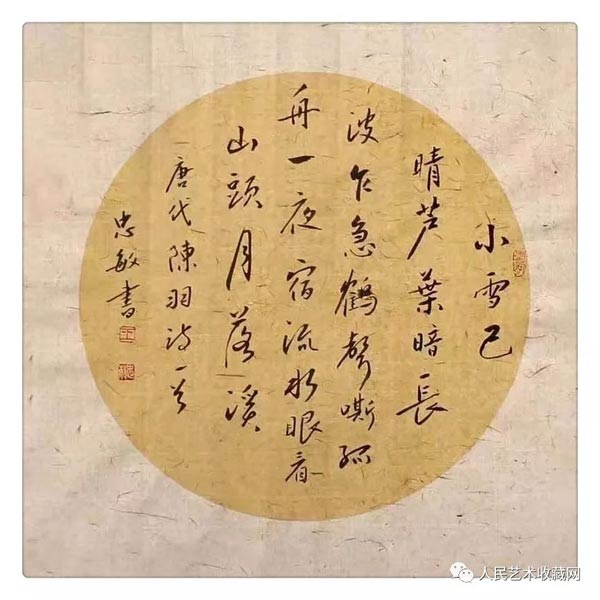 小雪已
晴芦葉暗長
波乍急鶴聲嘶孤
舟一夜宿流水眼看
山頭月落溪
唐代陳羽詩一首
忠敏書
人民艺术收藏网